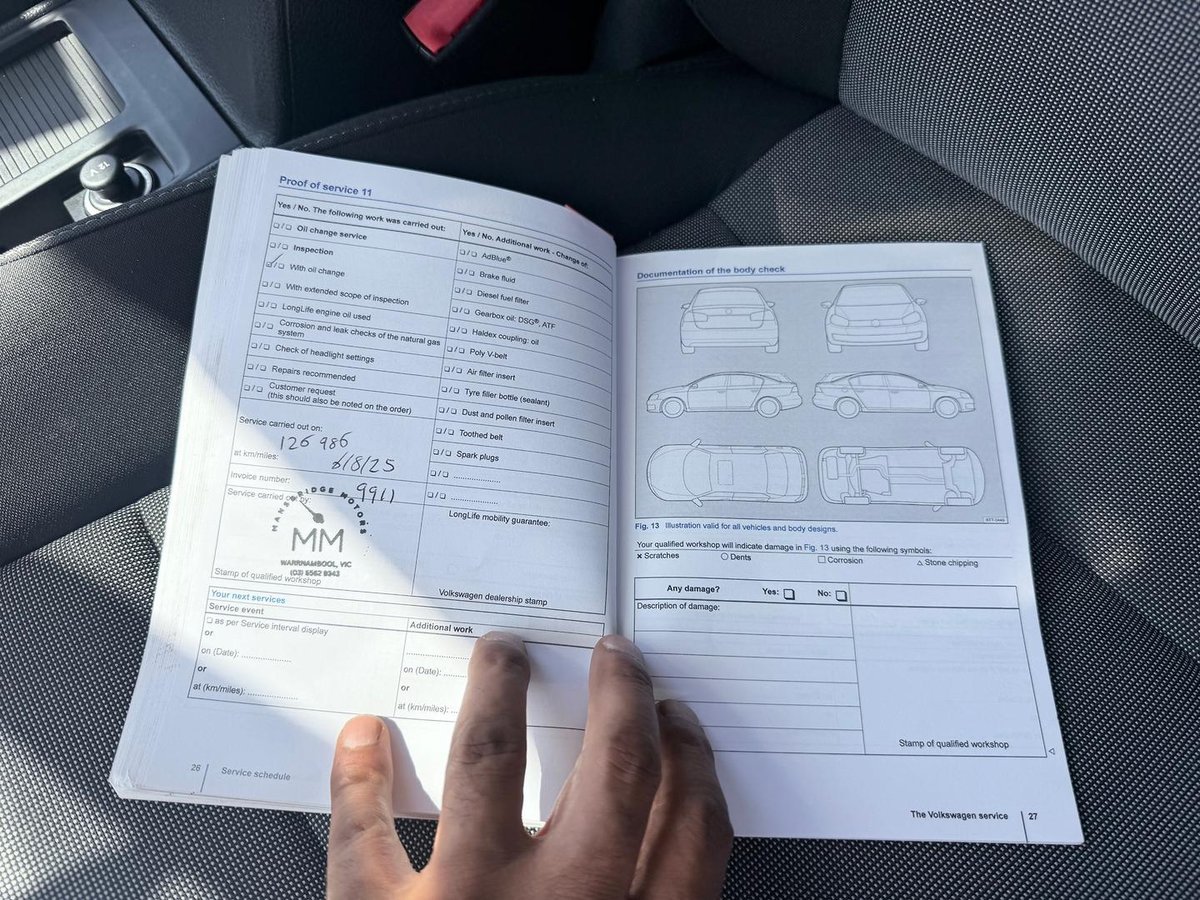 12 V
Proof of service 11
Yes / No. The following work was carried out:
❑/❑ Oil change service
❑/❑ Inspection
❑/❑ With oil change
❑/❑ With extended scope of inspection
❑/❑ LongLife engine oil used
❑/❑ Corrosion and leak checks of the natural gas
system
❑/❑ Check of headlight settings
❑/❑ Repairs recommended
❑/❑ Customer request
(this should also be noted on the order)
Service carried out on:
126 986
at km/miles:
6/8/25
Invoice number:
9911
Service carried out by:
MANSBRIDGE MOTORS
MM
WARRNAMBOOL, VIC
(03) 5562 9343
Stamp of qualified workshop
Yes / No. Additional work - Change of:
❑/❑ AdBlue®
❑/❑ Brake fluid
❑/❑ Diesel fuel filter
❑/❑ Gearbox oil: DSG®, ATF
❑/❑ Haldex coupling: oil
❑/❑ Poly V-belt
❑/❑ Air filter insert
❑/❑ Tyre filler bottle (sealant)
❑/❑ Dust and pollen filter insert
❑/❑ Toothed belt
❑/❑ Spark plugs
❑/❑ ....................
❑/❑ ....................
LongLife mobility guarantee:
Volkswagen dealership stamp
Your next services
Service event
❑ as per Service interval display
or
on (Date): ....................
or
at (km/miles): ....................
Additional work
....................
on (Date): ........
or
at (km/miles): ...
26 Service schedule
Documentation of the body check
Fig. 13 Illustration valid for all vehicles and body designs.
Your qualified workshop will indicate damage in Fig. 13 using the following symbols:
× Scratches ○ Dents □ Corrosion △ Stone chipping
Any damage? Yes: ❑ No: ❑
Description of damage:
Stamp of qualified workshop
The Volkswagen service 27